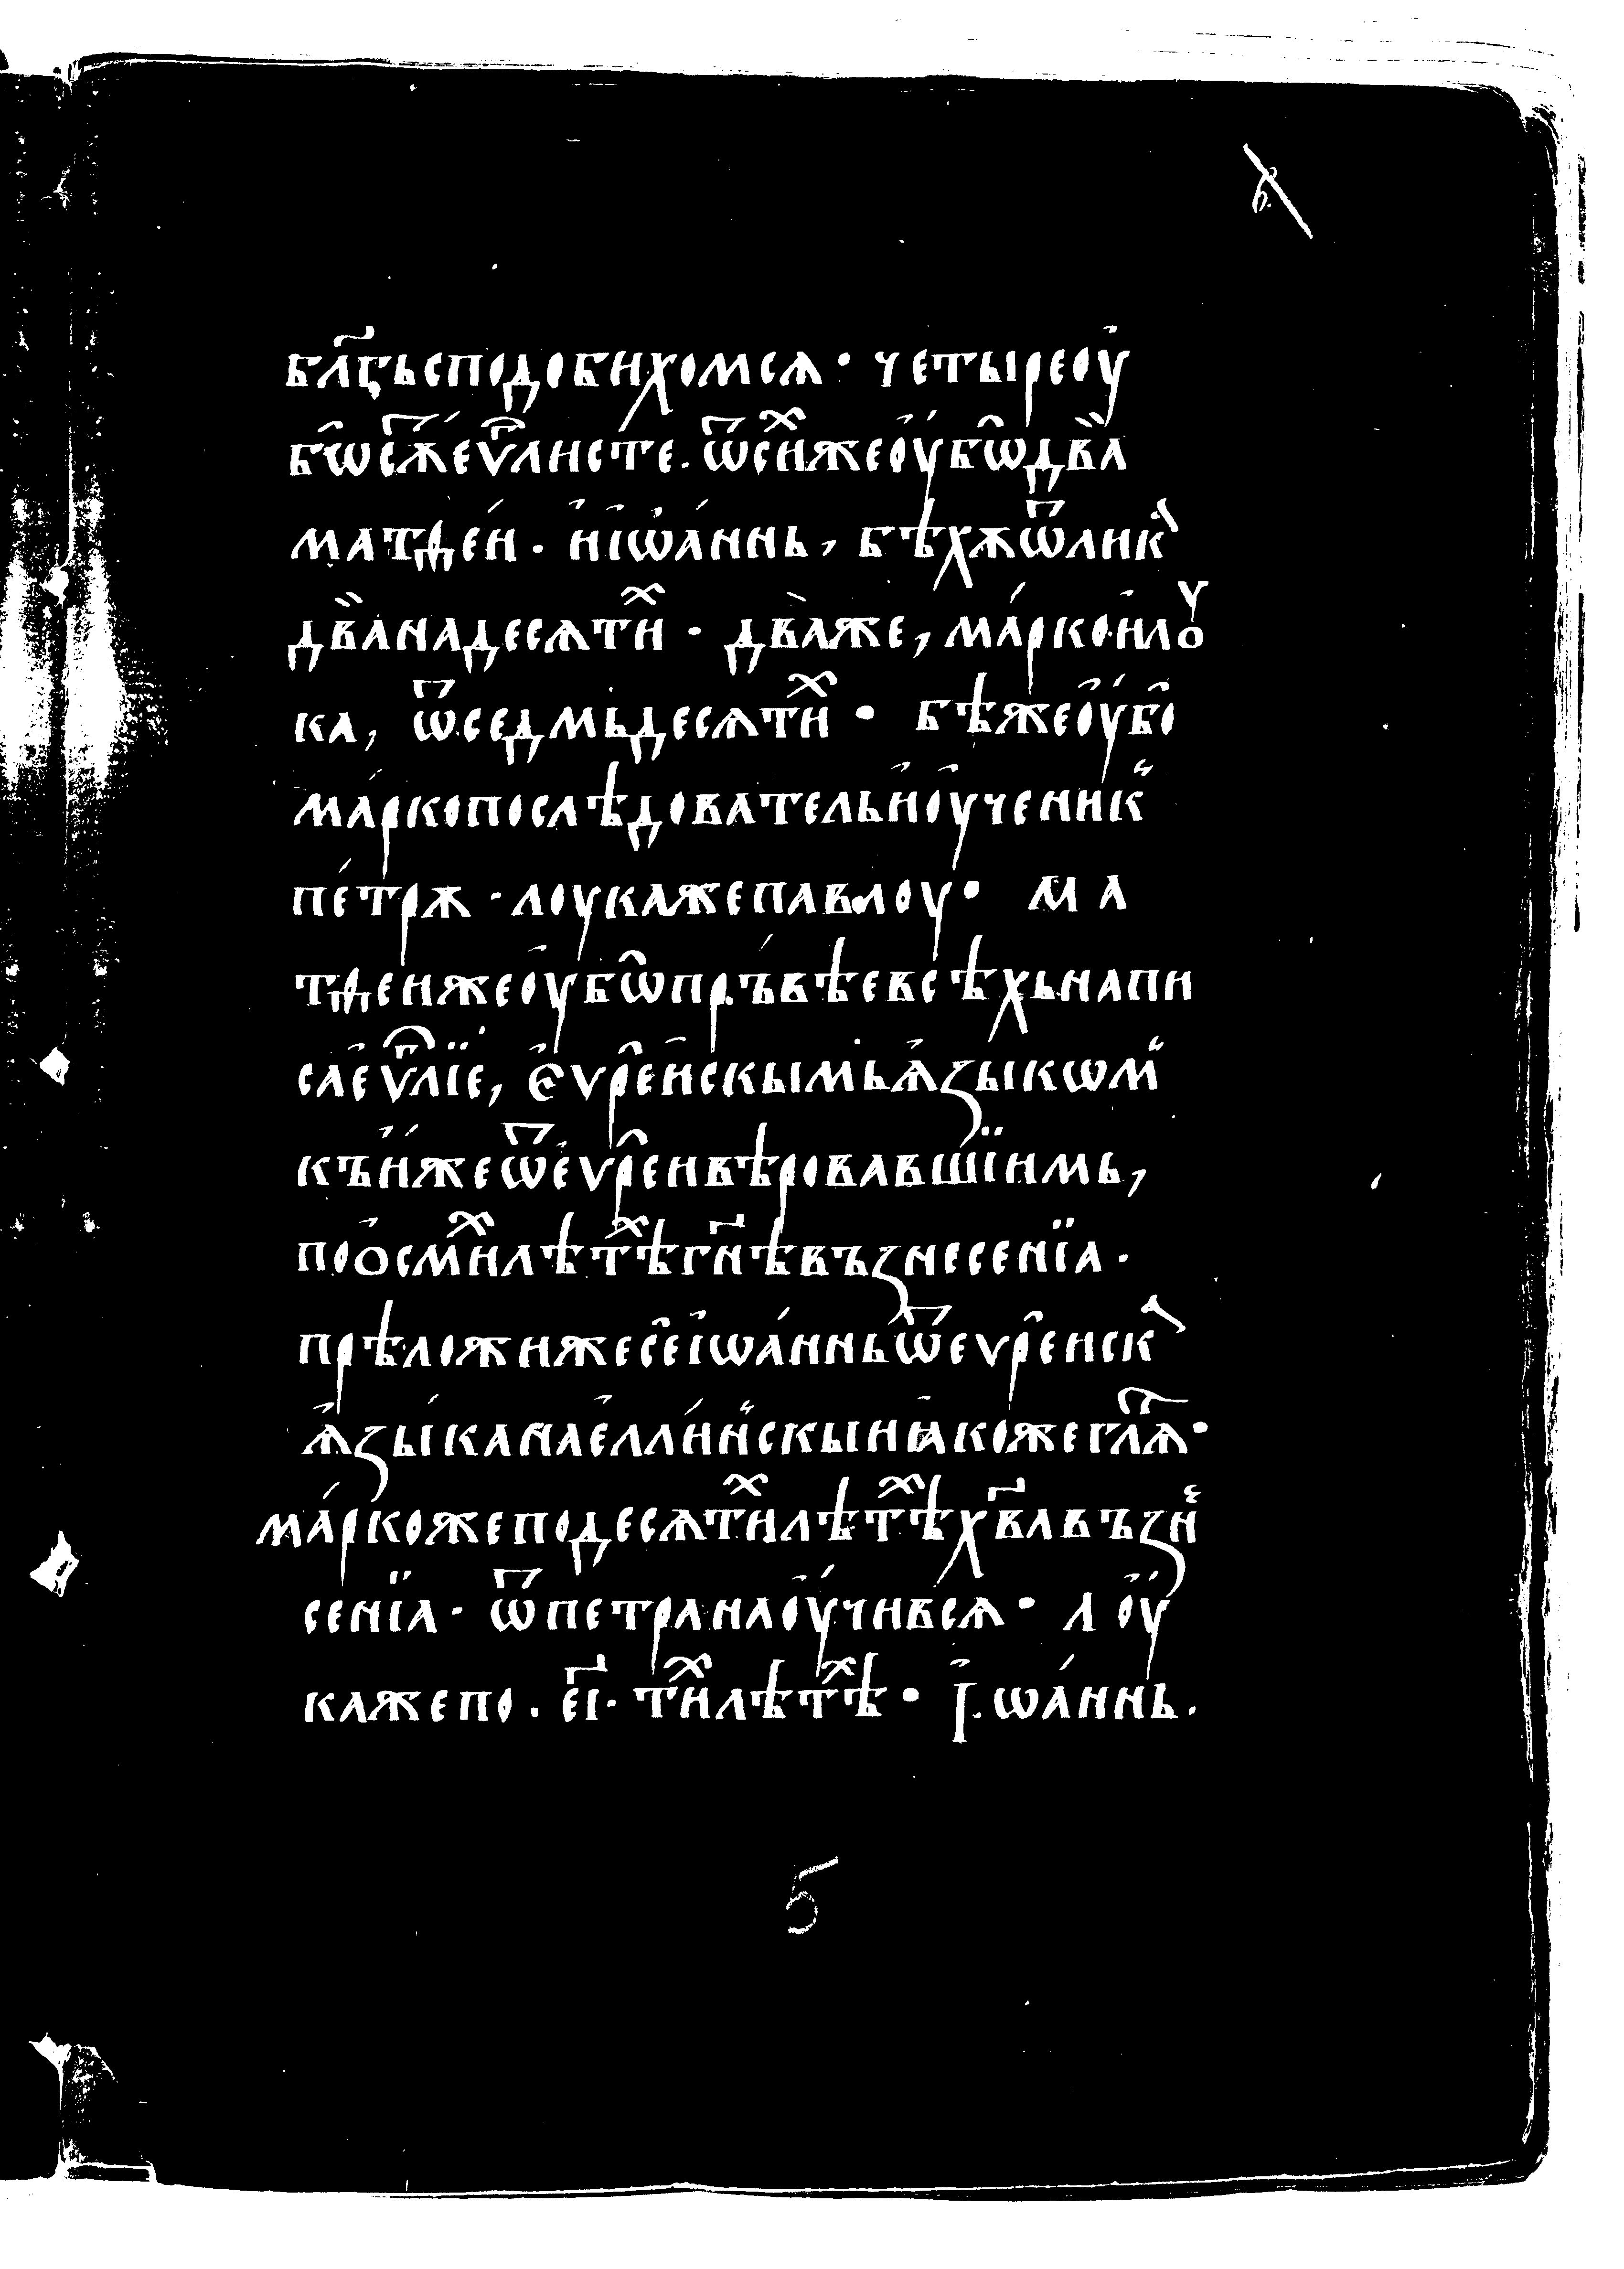 б҃.
бл҃гьсподобихомсѧ · четыреоу҆
бѡ̑сѫ́еѵⷢ҇листе. ѿсиⷯжеоу҆бѡ̑два̏
матѳе́и . и҆і҆ѡа́ннь, бѣхѫѿликⷶ
два̏надесѧтиⷯ · два̀же, ма́ркои҆лоⷹ
ка, ѿседмьдесѧтиⷯ · бѣжеоу҆бо̑
ма́ркопослѣдователь и҆оу҆ченик̾
пе́трѫ · лоукажепавлоу · ма
тѳеижеоу҆бѡ̑пръвѣевсѣхьнапи
сае҆ѵⷢ҇лїе, е҆ѵре̑искымьѧ҆зыкѡм̾
къи҆́жеѿе҆ѵре̑ивѣровавшїимь,
поо҆смиⷯлѣтѣⷯгн҃ѣвъзнесенїа ·
прѣложижесе̑і҆ѡа́нньѿеѵре̑искⷶ
ѧ҆зы́канае҆лли́н̾скыиꙗкожегл҃ѧ ·
ма́ркожеподесѧтиⷯлѣтѣⷯхв҃авъзнⷷ
сенїа · ѿпетранаоу҆́чивсѧ · лоу҆́
кажепо . е҃і · тиⷯлѣтѣⷯ · і҆.ѡа́ннь.
5